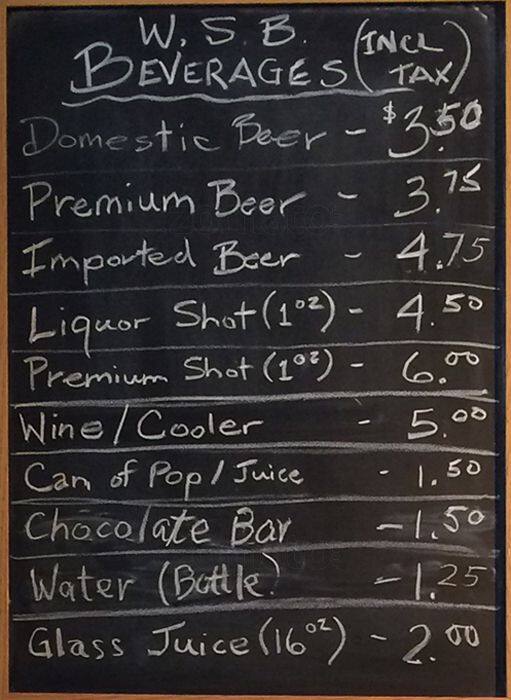 W. S. B.
BEVERAGES (INCL TAX)
Domestic Beer - $3.50
Premium Beer - 3.75
Imported Beer - 4.75
Liquor Shot (1oz) - 4.50
Premium Shot (1oz) - 6.00
Wine/Cooler - 5.00
Can of Pop/Juice - 1.50
Chocolate Bar - 1.50
Water (Bottle) - 1.25
Glass Juice (16oz) - 2.00